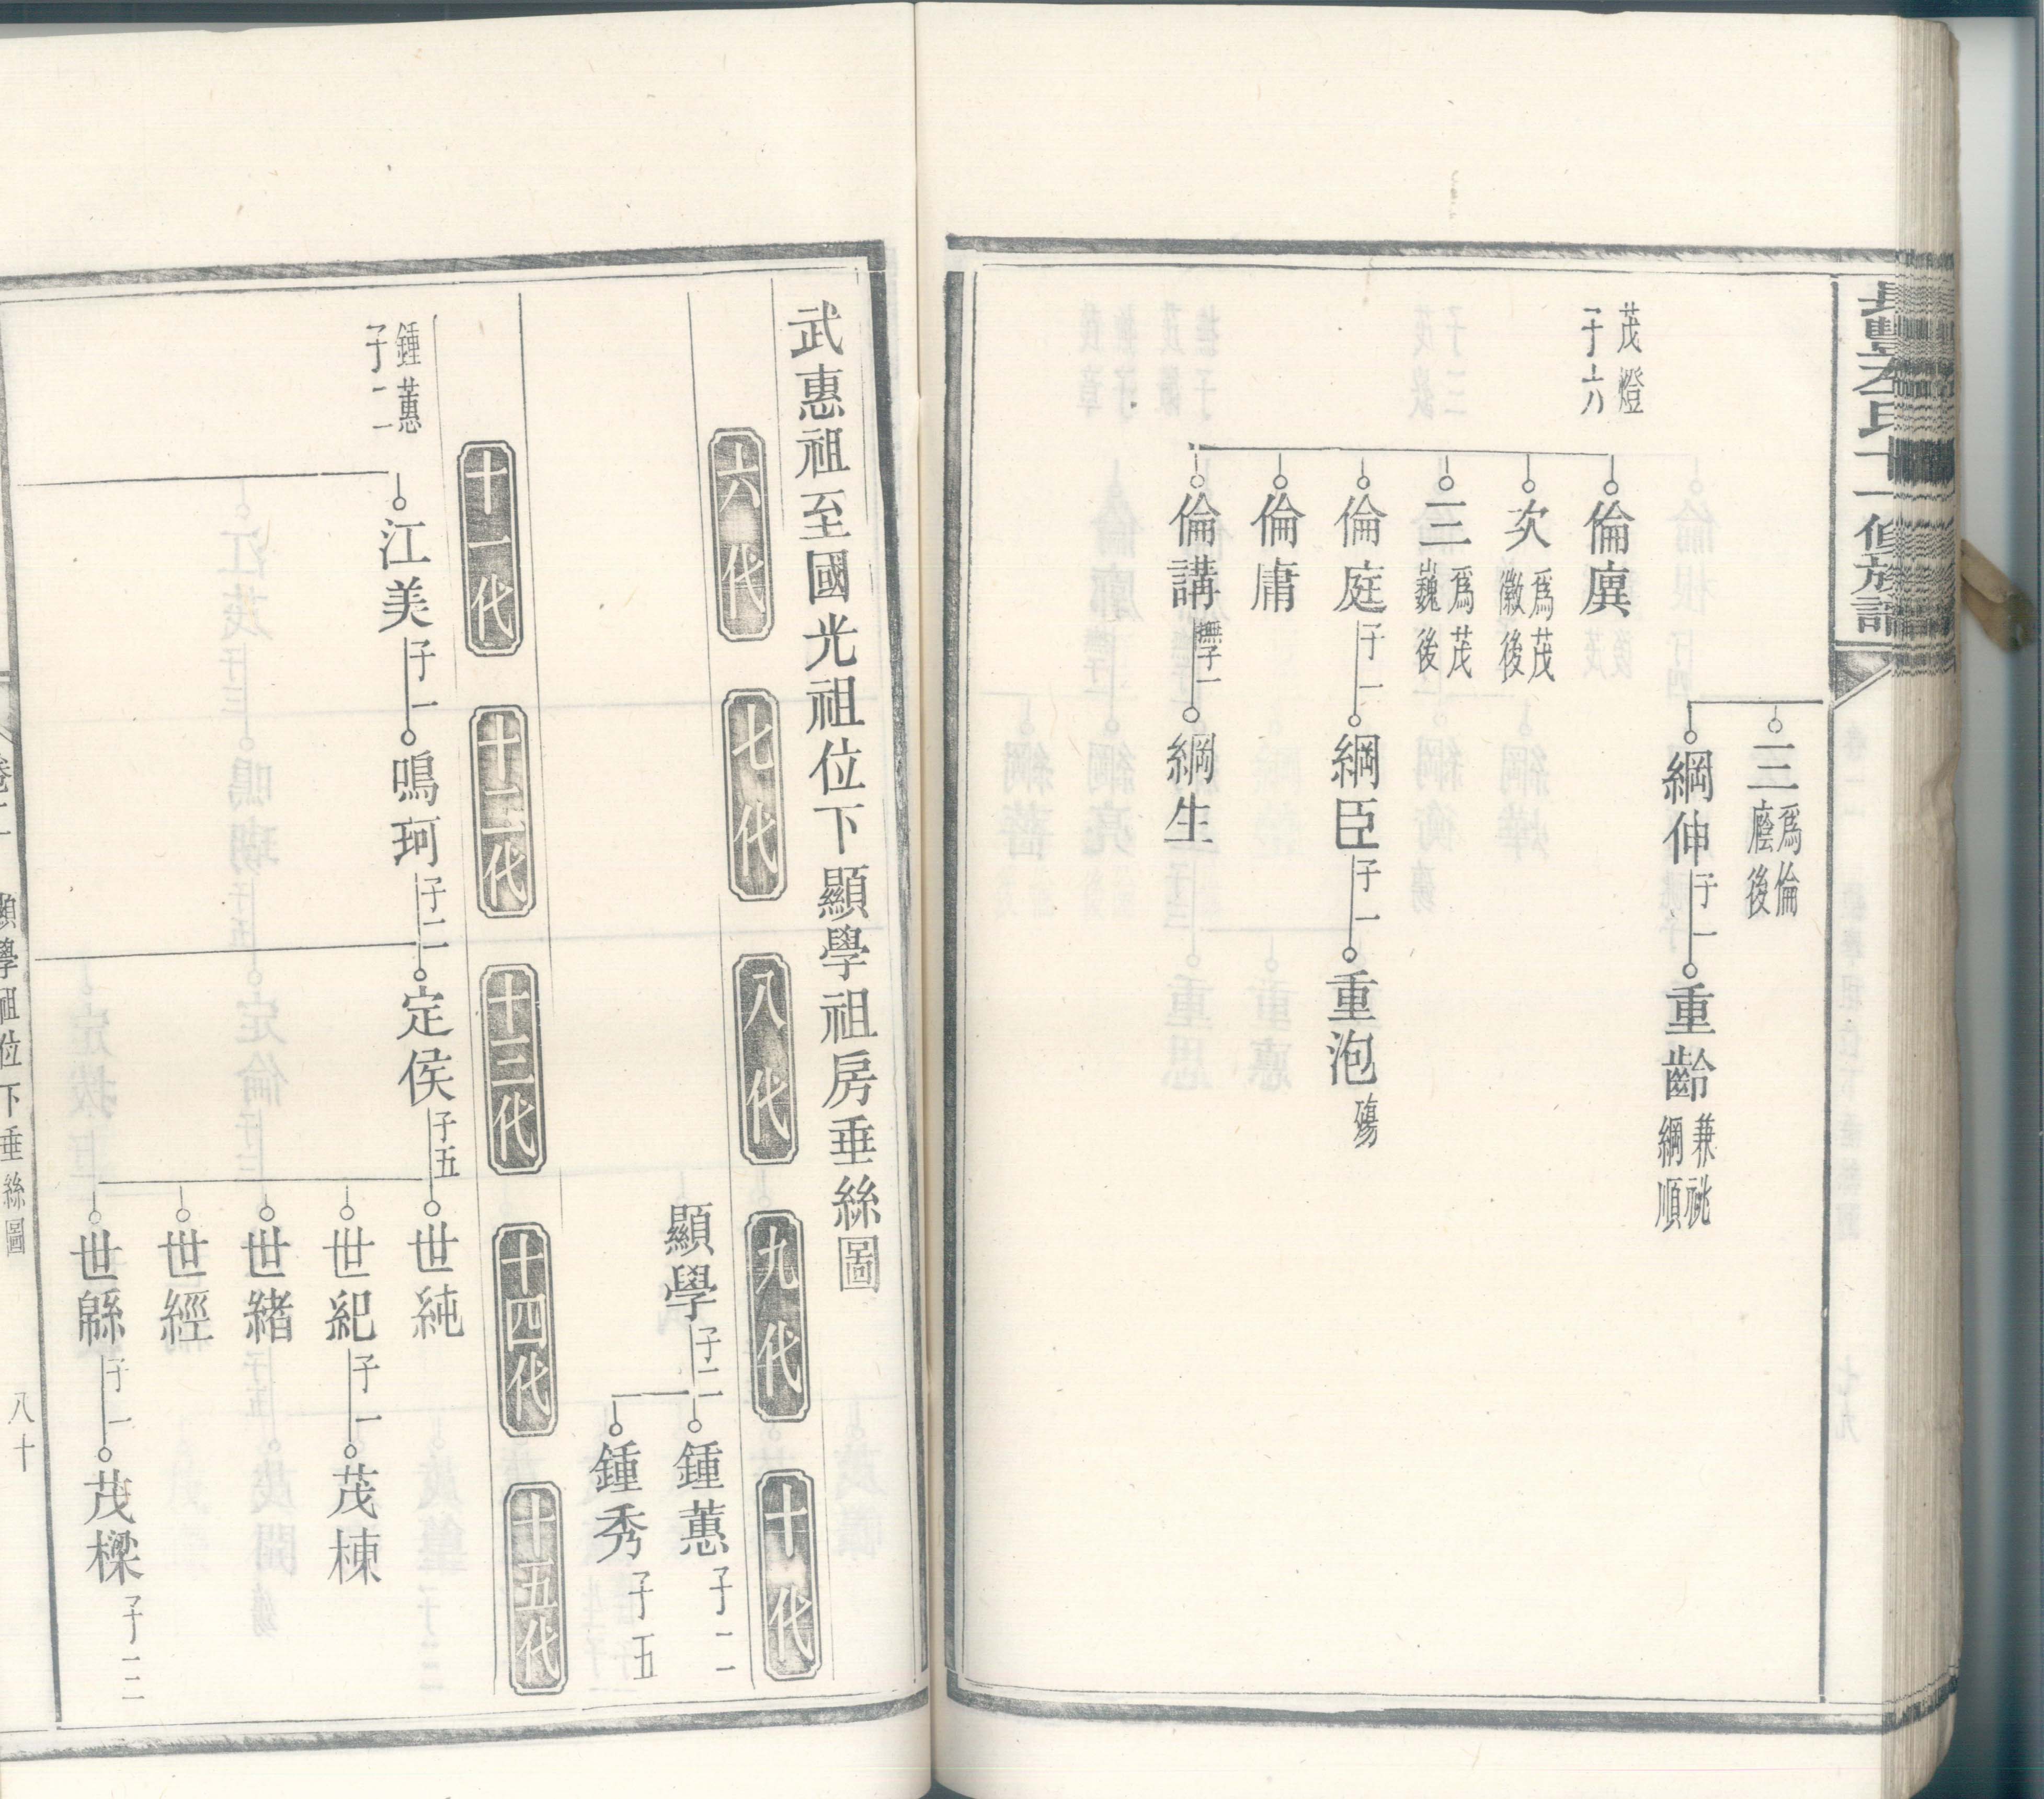 三 爲倫廕後
綱伸 子一 重齡 兼祧綱順
茂燈 子六
倫廙
次 爲茂徽後
三 爲茂巍後
倫庭 子一 綱臣 子一 重泡 殤
倫庸
倫講 撫子一 綱生
武惠祖至國光祖位下顯學祖房垂絲圖
六代 七代 八代 九代 十代
顯學 子二 鍾蕙 子二
鍾秀 子五
十一代 十二代 十三代 十四代 十五代
鍾蕙 子二
江美 子一 鳴珂 子二 定侯 子五 世純
世紀 子一 茂棟
世緒
世經
世緜 子一 茂樑 子二
顯學祖位下垂絲圖 八十